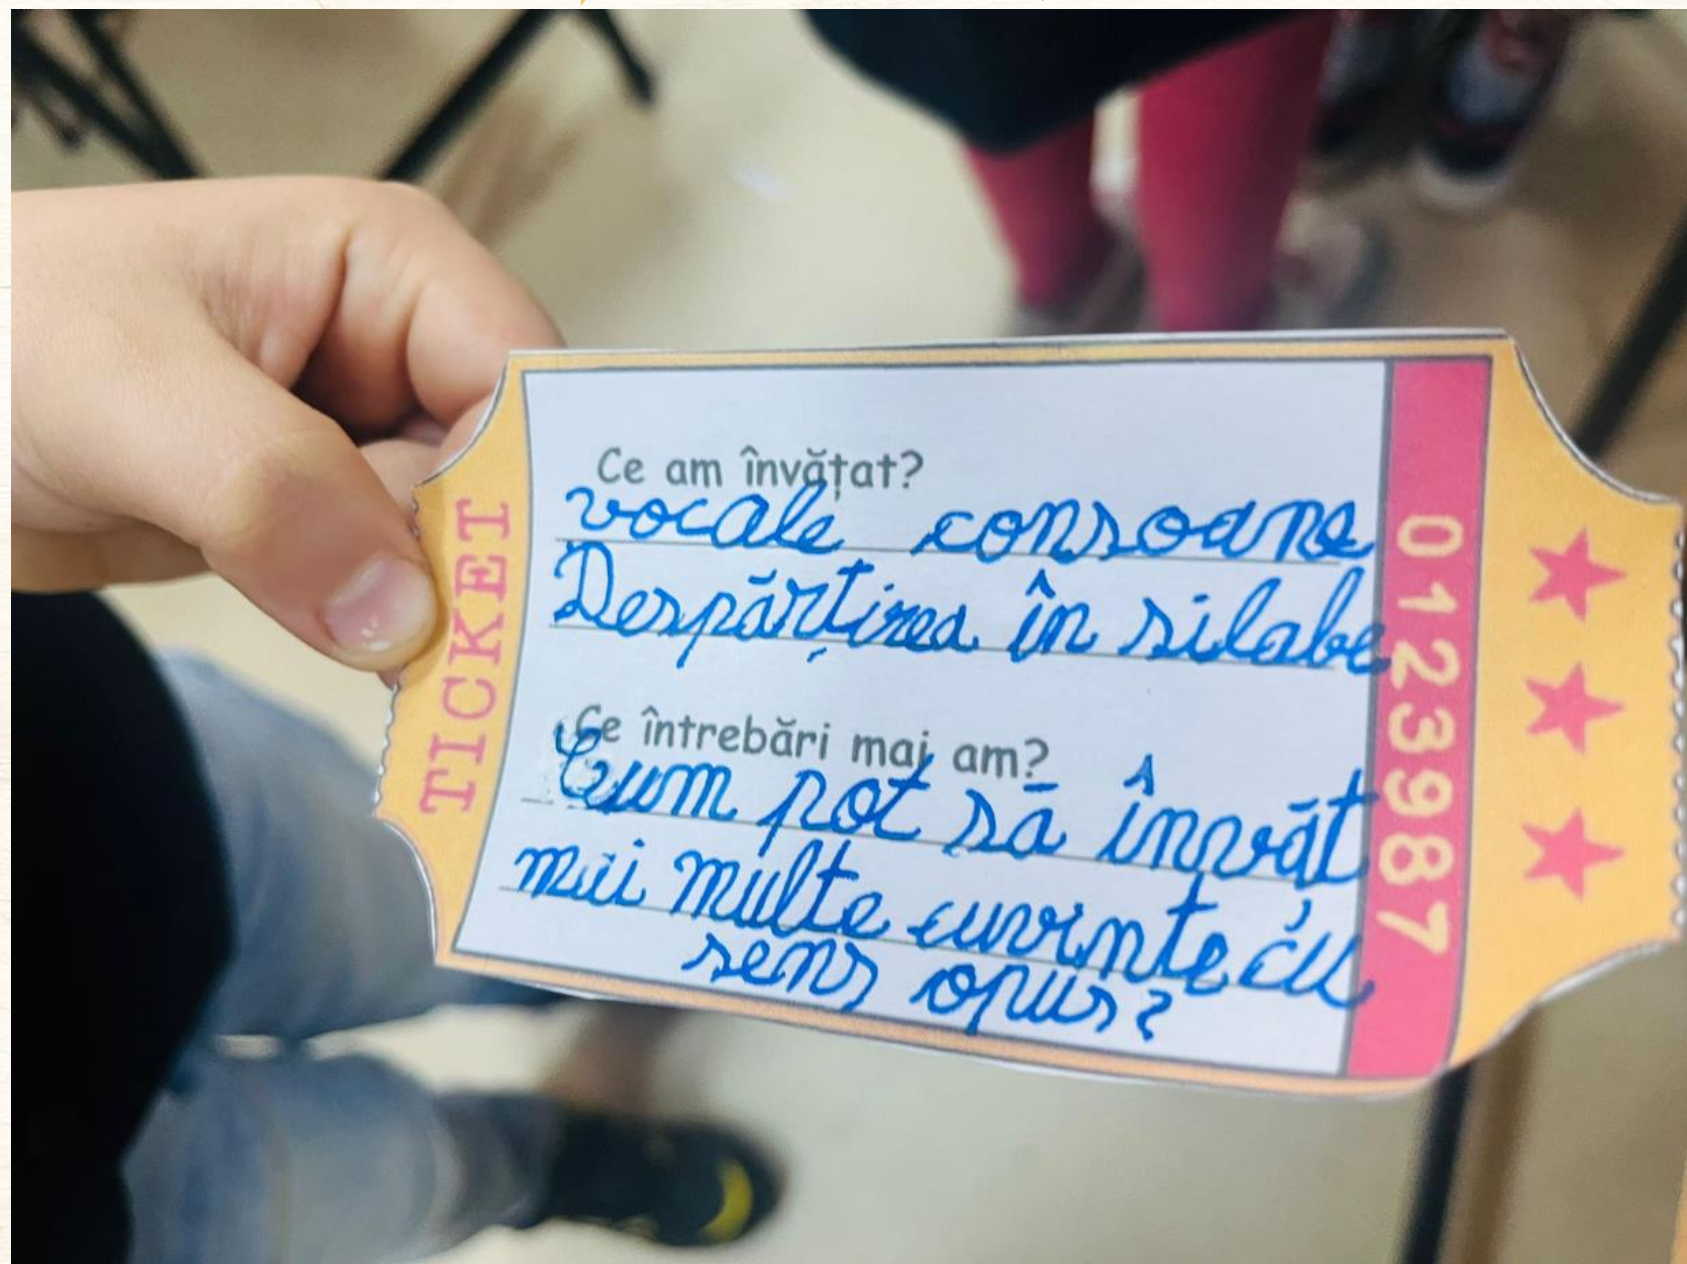 TICKET
Ce am învățat?
vocale consoane
Despărțirea în silabe
Ce întrebări mai am?
Cum pot să învăt
mai multe cuvinte cu
sens opus?
0123987